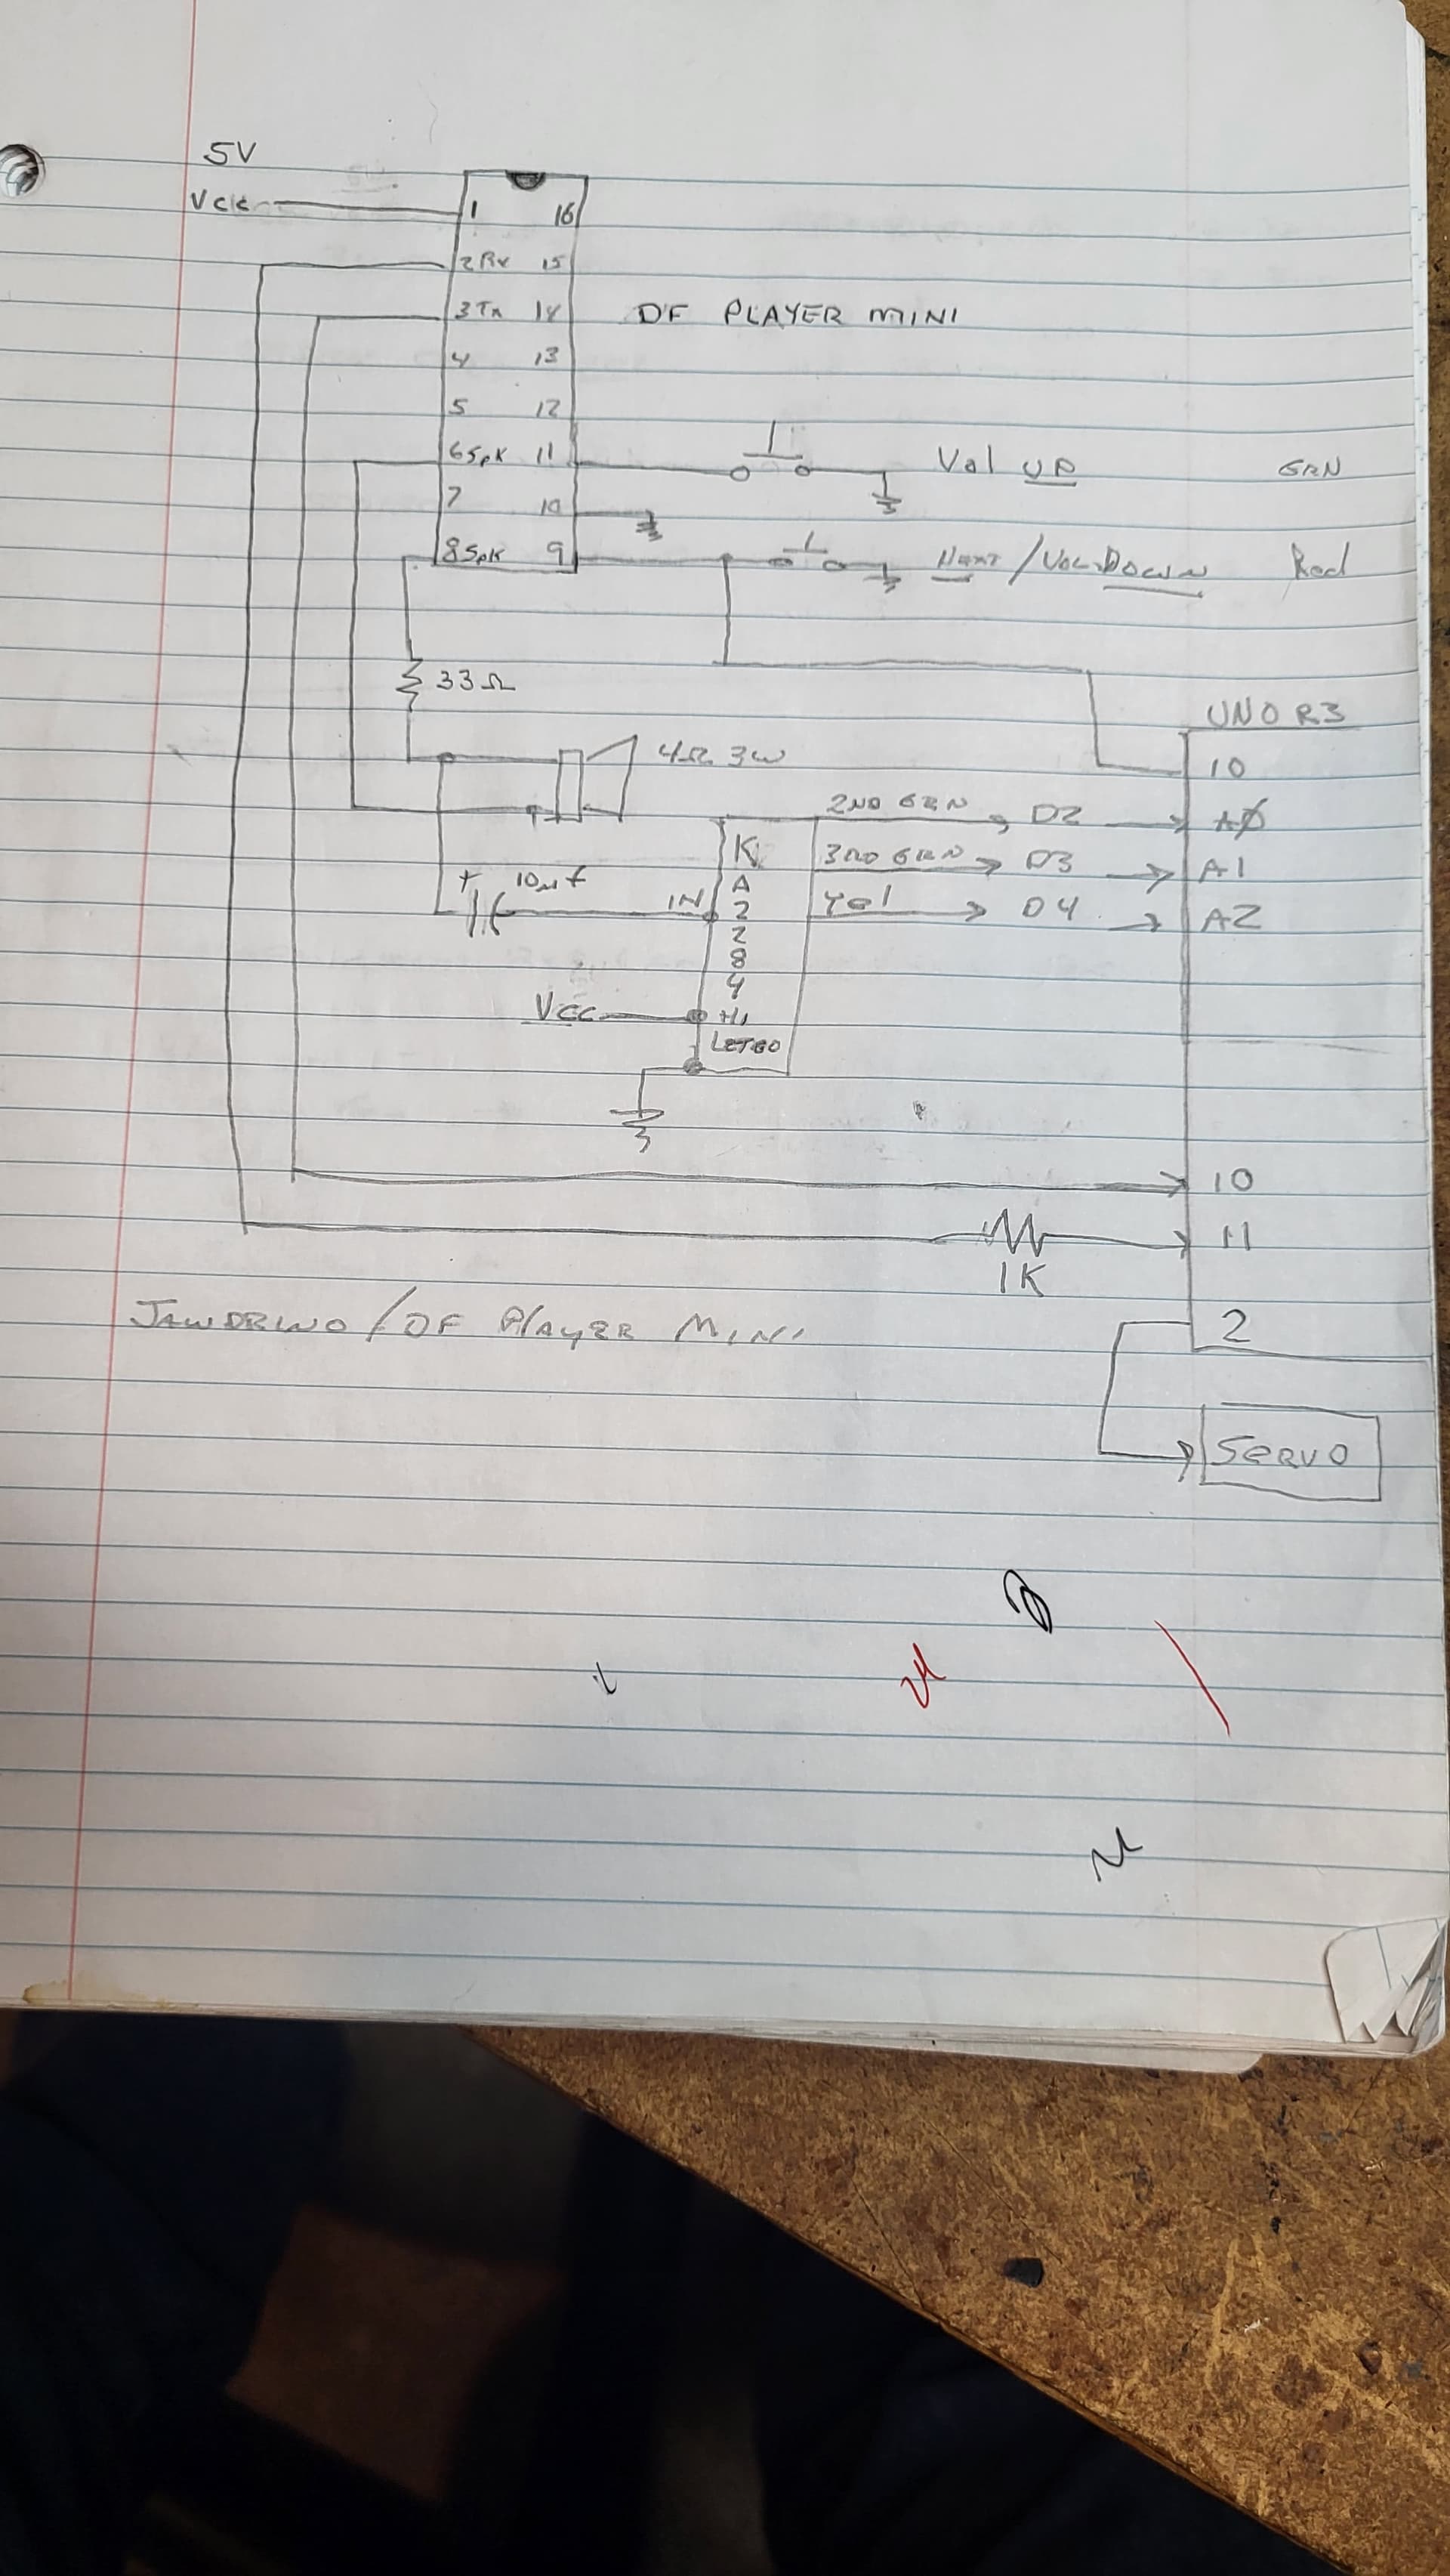 5V
Vcc
1 16
2 Rx 15
3 Tx 14
DF PLAYER MINI
4 13
5 12
6 SpK 11
Vol UP GRN
7 10
8 SpK 9
NEXT / VOL DOWN Red
33Ω
UNO R3
4Ω 3W
10
2ND GRN D2 AØ
K
3RD GRN D3 A1
A
+ 10µf
IN
2
Yel D4 A2
2
8
4
Vcc
LET60
10
11
1K
JAWDRINO / DF PlAYER MINI
2
SERVO